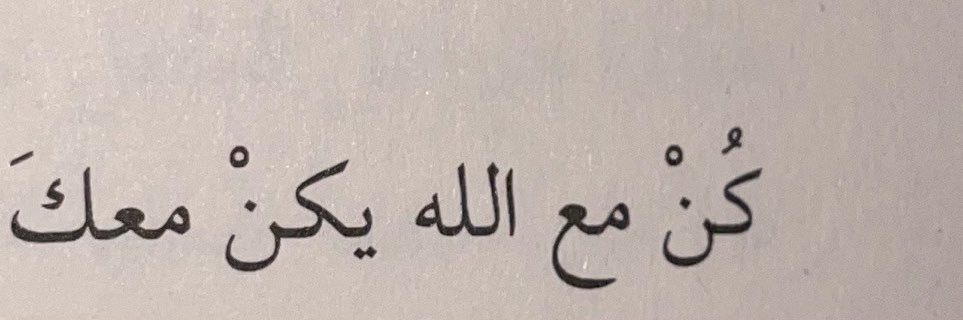 كُنْ مع الله يكنْ معكَ